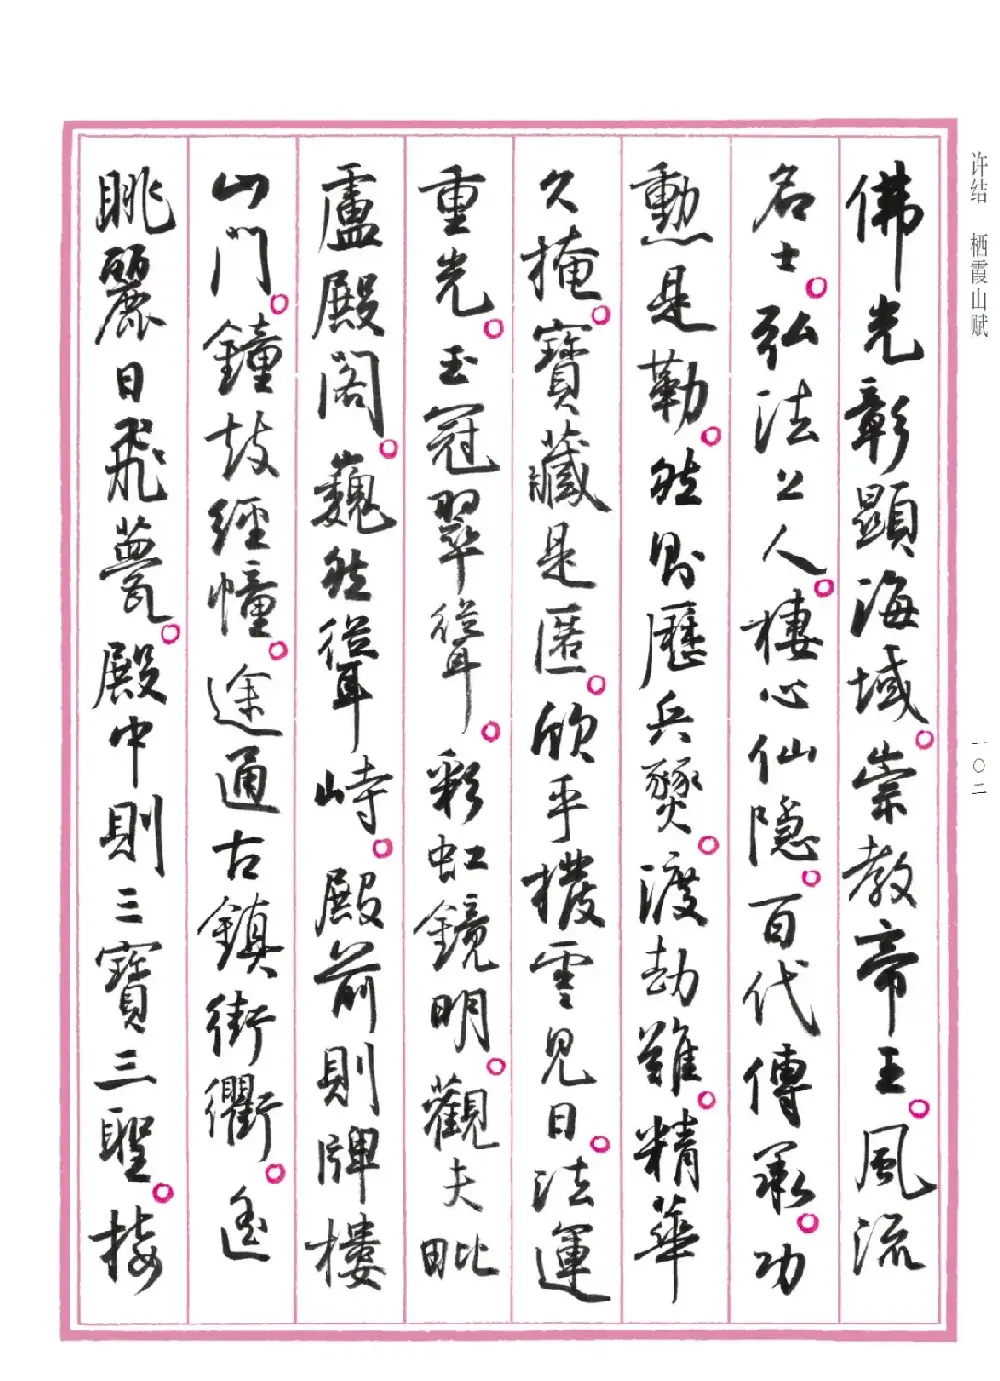 佛光彰顯海域。崇教帝王。風流
名士。弘法公人。棲心仙隐。百代傳承。功
勳是勒。然則歷兵燹。渡劫難。精華
久掩。寶藏是匿。欣乎撥雲見日。法運
重光。玉冠翠聳。彩虹鏡明。觀夫毗
盧殿閣。巍然聳峙。殿前則牌樓
山門。鐘鼓經幢。途通古鎮街衢。遥
眺麗日飛甍。殿中則三寶三聖。接
许结 栖霞山赋
一〇二